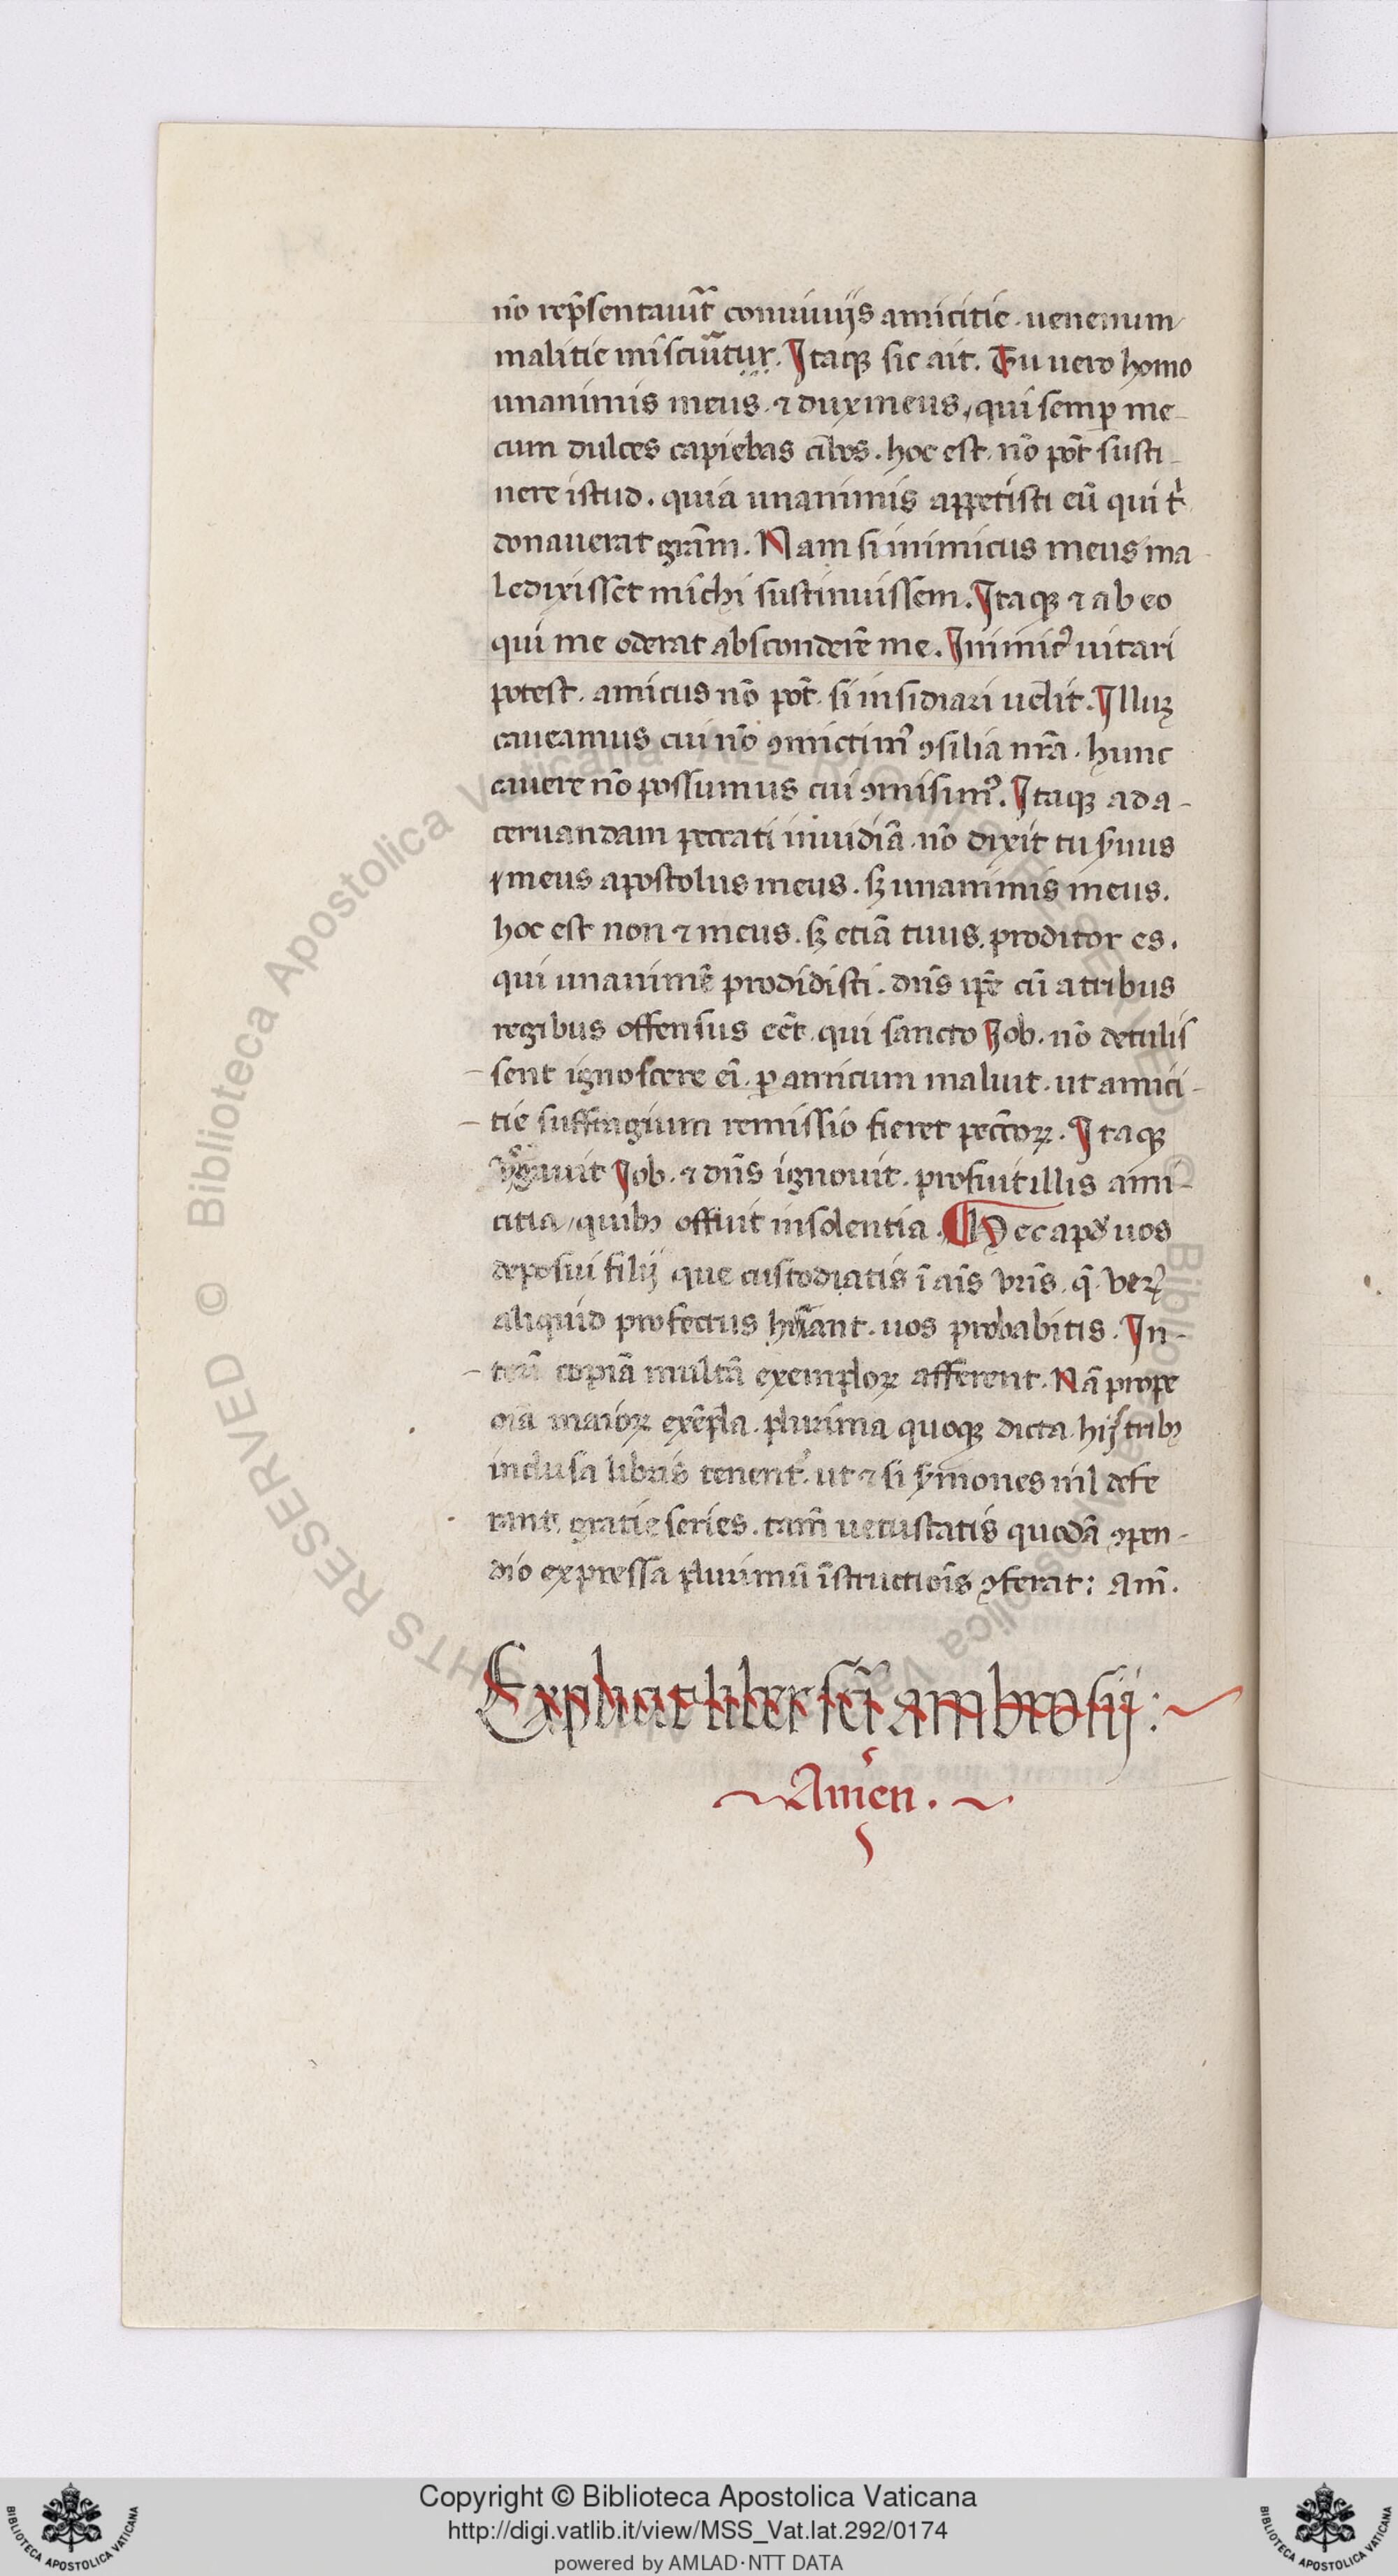 nō rep̄sentauūt conuiuijs amicitie . uenenum
malitie misciūtur . Itaqꝫ sic ait . Tu uero homo
unanimis meus . ⁊ dux meus , qui semꝑ me-
cum dulces capiebas cibos . hoc est , nō pōt susti-
nere istud . quia unanimis appetisti eū qui tͥ
donauerat grām . Nam si inimicus meus ma-
ledixisset michi sustinuissem . Itaqꝫ ⁊ ab eo
qui me oderat absconderē me . Inimicꝰ uitari
potest . amicus nō pōt . si insidiari uelit . Illuꝫ
caueamus cui nō ꝯmictimꝰ ꝯsilia nr̄a . hunc
cauere nō possumus cui ꝯmisimꝰ . Itaqꝫ ad a-
ceruandam peccati inuidiā . nō dixit tu s͛uus
meus apostolus meus . sꝫ unanimis meus .
hoc est non ⁊ meus . sꝫ etiā tuus . proditor es .
qui unanimē prodidisti . dn̄s ip̄e cū a tribus
regibus offensus eēt . qui sancto Job . nō detulis
sent ignoscere eī . ꝑ amicum maluit . ut amici-
tie suffragium remissio fieret pecc̄oꝝ . Itaqꝫ
rogauit Job . ⁊ dn̄s ignouit . profuit illis ami-
citia , quibꝫ offuit insolentia . Hec apď uos
deposui filij que custodiatis ī aīs vr̄is . q̄ veꝝ
aliquid profectus habeant . uos probabitis . In-
terī copiā multā exemploꝝ afferent . Nā prope
oīa maioꝝ exēpla . plurima quoqꝫ dicta . hijs tribꝫ
inclusa libris tenentᷣ . ut ⁊ si s͛mones nil defe
rant , gratie series . tam̄ uetustatis quodā ꝯpen-
dio expressa plurimū īstructiōis ꝯferat : am̄ .
Explicit liber sc̄i ambrosij :
Amen .
Copyright © Biblioteca Apostolica Vaticana
http://digi.vatlib.it/view/MSS_Vat.lat.292/0174
powered by AMLAD·NTT DATA